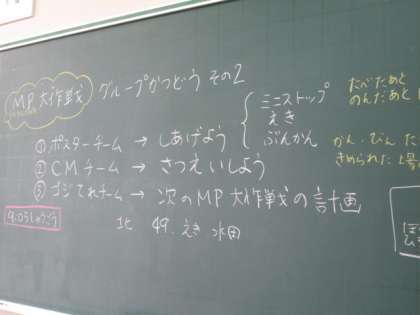 MP大作戦 グループかつどう その2
ミニストップ
えき
ぶんかん
①ポスターチーム → しあげよう
②C.M.チーム → さつえいしよう
③ゴジてれチーム → 次のMP大作戦の計画
9:05しゅうごう
北 49. えき 水田
たべたあと
のんだあと
かん・びん
きめられた